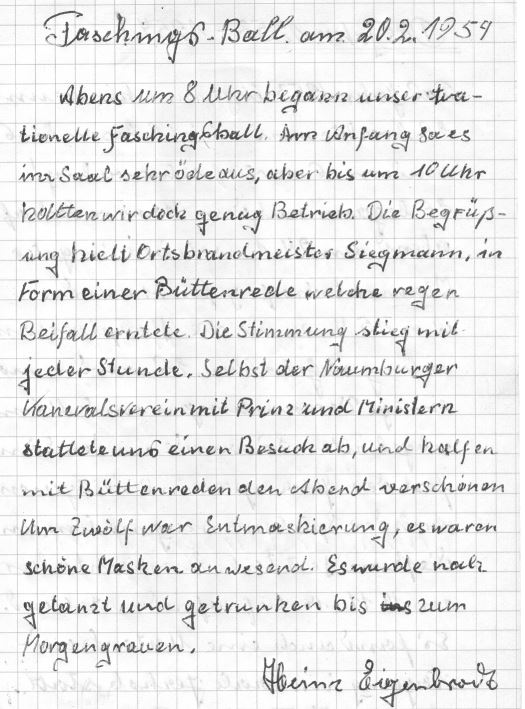 Faschings-Ball. am 20.2.1954
Abens um 8 Uhr begann unser tra-
tionelle Faschingsball. Am Anfang sa es
im Saal sehr öde aus, aber bis um 10 Uhr
hattten wir doch genug Betrieb. Die Begrüß-
ung hielt Ortsbrandmeister Siegmann, in
Form einer Büttenrede welche regen
Beifall erntete. Die Stimmung stieg mit
jeder Stunde. Selbst der Naumburger
Kaneralsverein mit Prinz und Ministern
stattete uns einen Besuch ab, und halfen
mit Büttenreden den Abend verschönen
Um Zwölf war Entmaskierung, es waren
schöne Masken anwesend. Es wurde noch
getanzt und getrunken bis zum
Morgengrauen.
Heinz Eigenbrodt